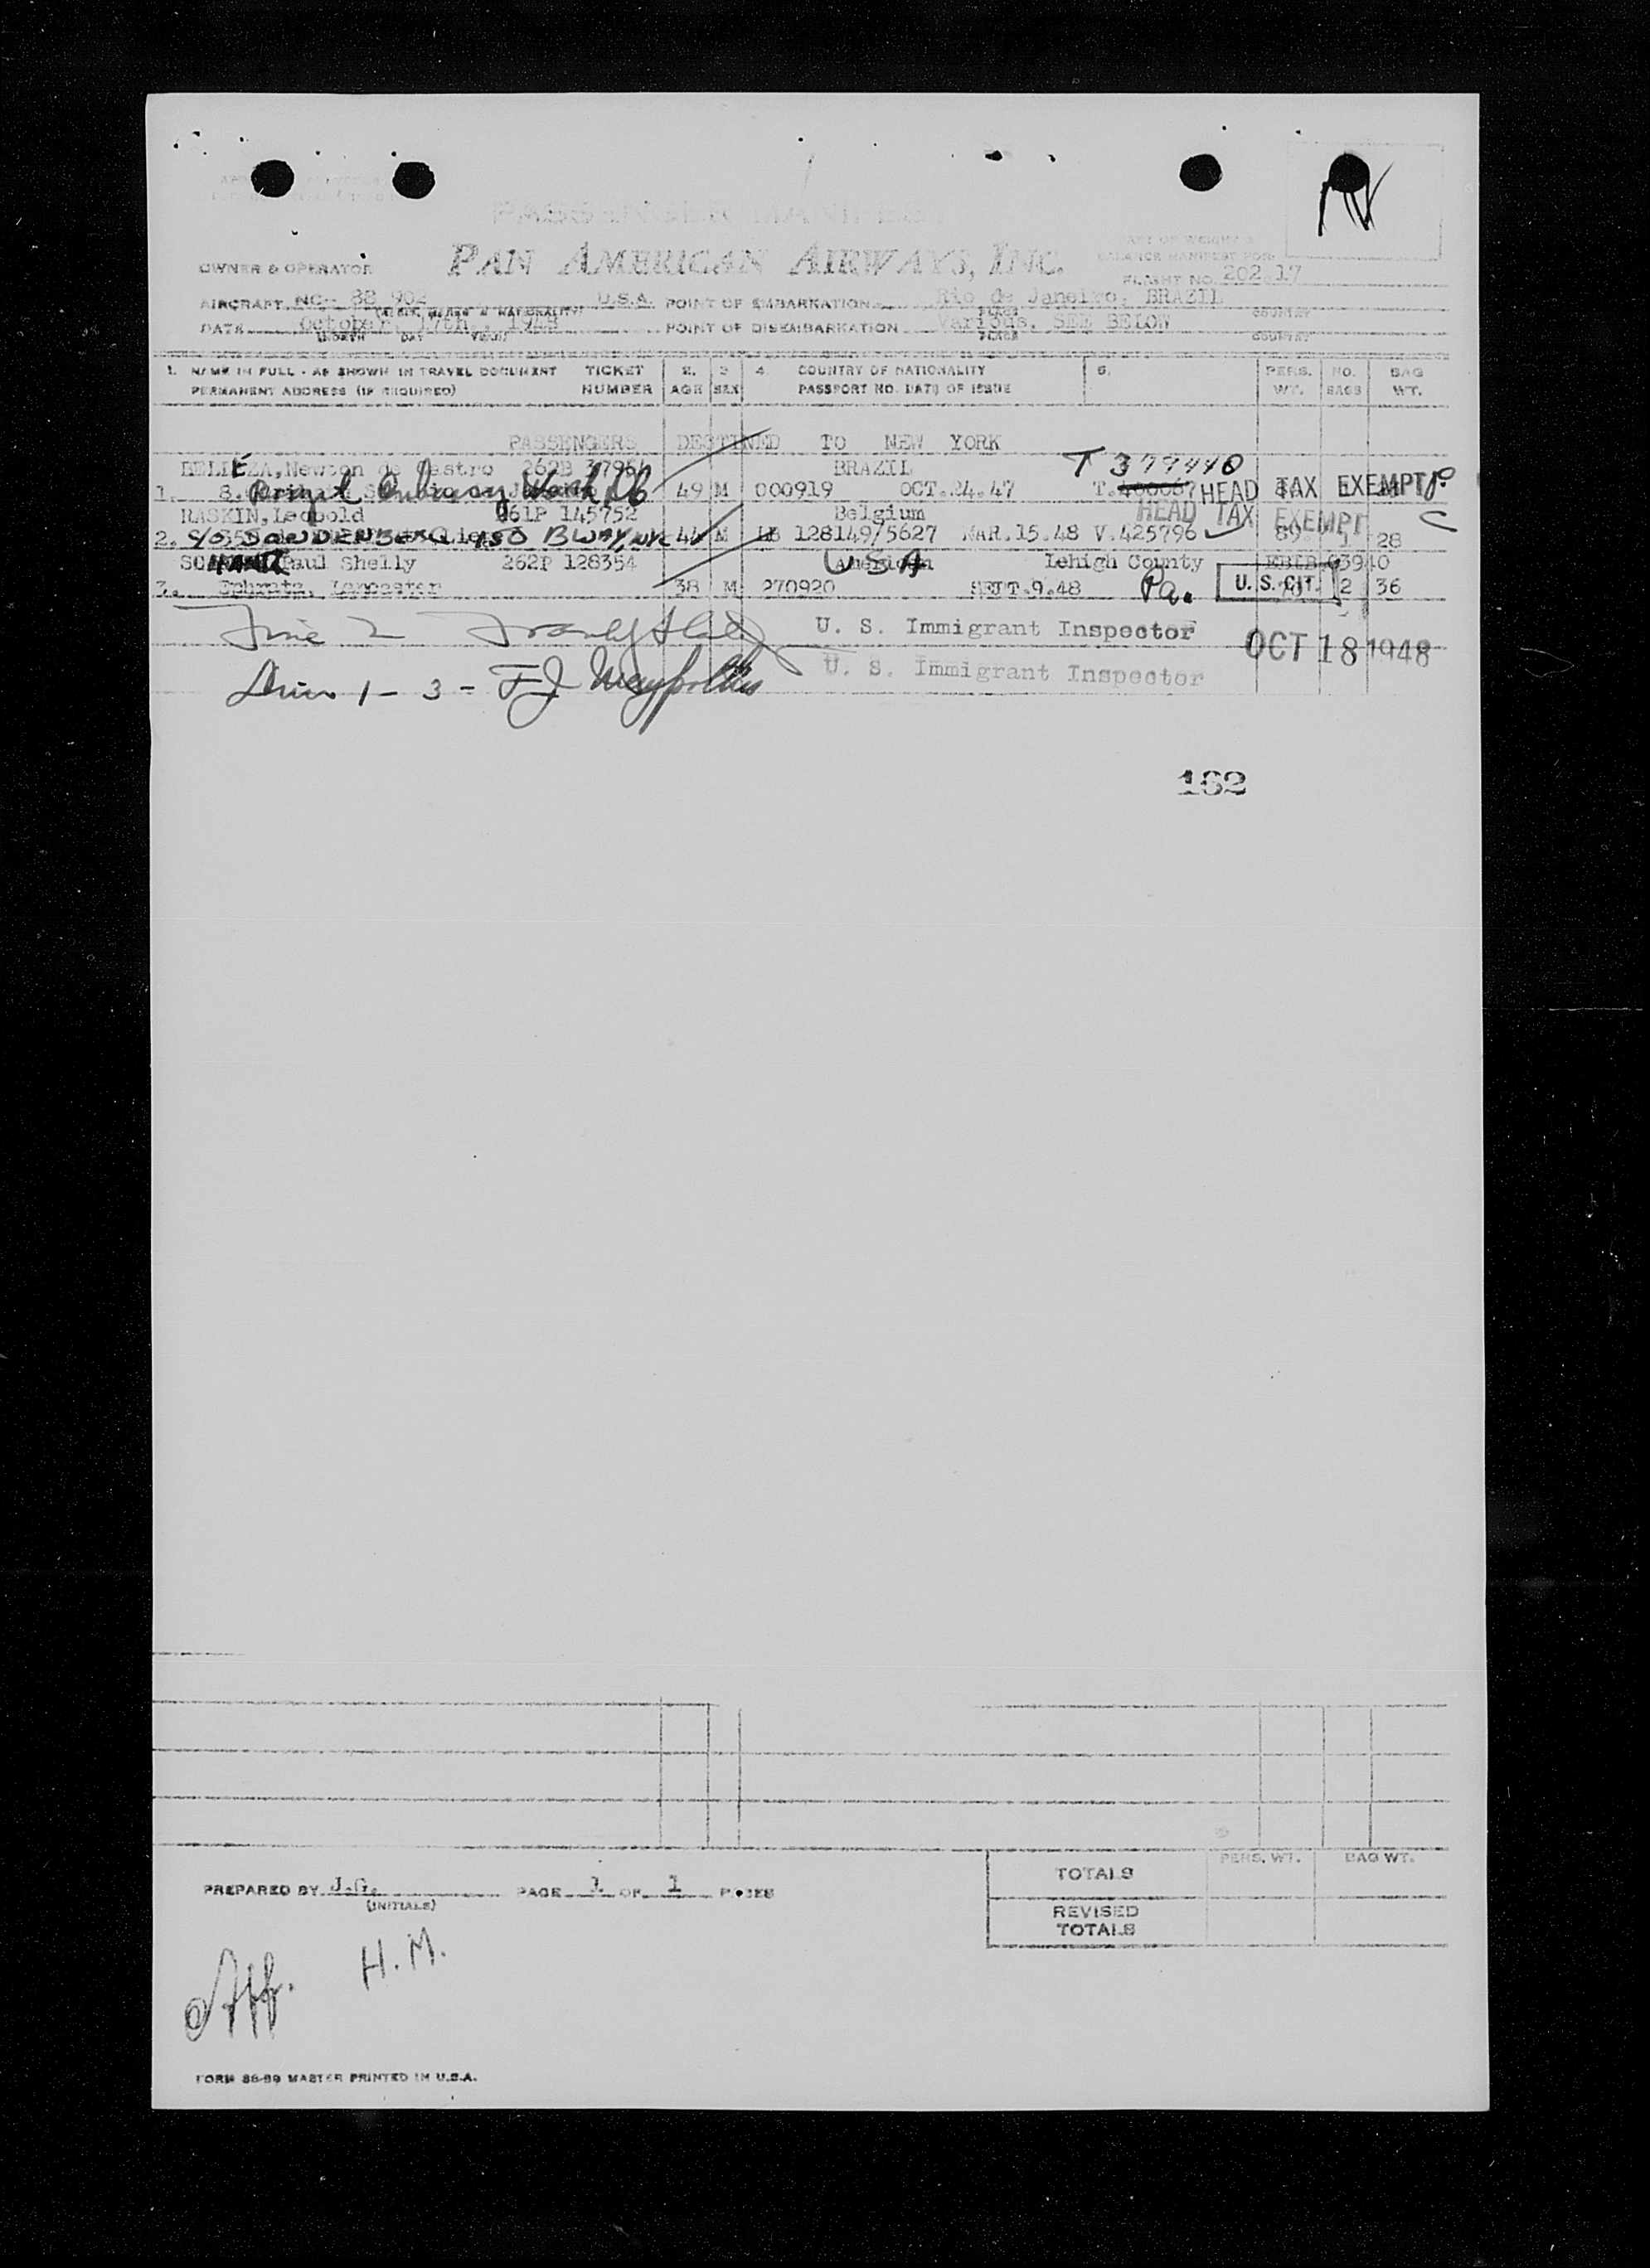 PASSENGER MANIFEST
OWNER & OPERATOR PAN AMERICAN AIRWAYS, INC.
PART OF WEIGHT &
BALANCE MANIFEST FOR
FLIGHT NO. 202-17
AIRCRAFT NC- 88 902 U.S.A. POINT OF EMBARKATION Rio de Janeiro, BRAZIL
PLACE COUNTRY
DATE October, 17th, 1948 POINT OF DISEMBARKATION Various, SEE BELOW
MONTH DAY YEAR PLACE COUNTRY
1. NAME IN FULL - AS SHOWN IN TRAVEL DOCUMENT TICKET 2. 3 4. COUNTRY OF NATIONALITY 5. PERS. NO. BAG
PERMANENT ADDRESS (IF REQUIRED) NUMBER AGE SEX PASSPORT NO. DATE OF ISSUE WT. BAGS WT.
PASSENGERS DESTINED TO NEW YORK
BELIEZA, Newton de Castro 262B BRAZIL T 379440
1. Brazil Embassy Wash DC 49 M 000919 OCT.24.47 HEAD TAX EXEMPT
RASKIN, Leopold 261P 145752 Belgium HEAD TAX EXEMPT
2. C/O SANDENBERG 150 BWAY, NY 44 M 128149/5627 MAR.15.48 V.425796 89 1 28
Paul Shelly 262P 128354 USA Lehigh County
3. Ephrata, Lancaster 38 M 270920 SEPT.9.48 Pa. U. S. CIT. 2 36
Line 2 U. S. Immigrant Inspector OCT 18 1948
Lines 1 - 3 - F J U. S. Immigrant Inspector
162
PREPARED BY J.G. PAGE 1 OF 1 PAGES
(INITIALS)
TOTALS PERS. WT. BAG WT.
REVISED
TOTALS
H.M.
FORM 86-99 MASTER PRINTED IN U.S.A.